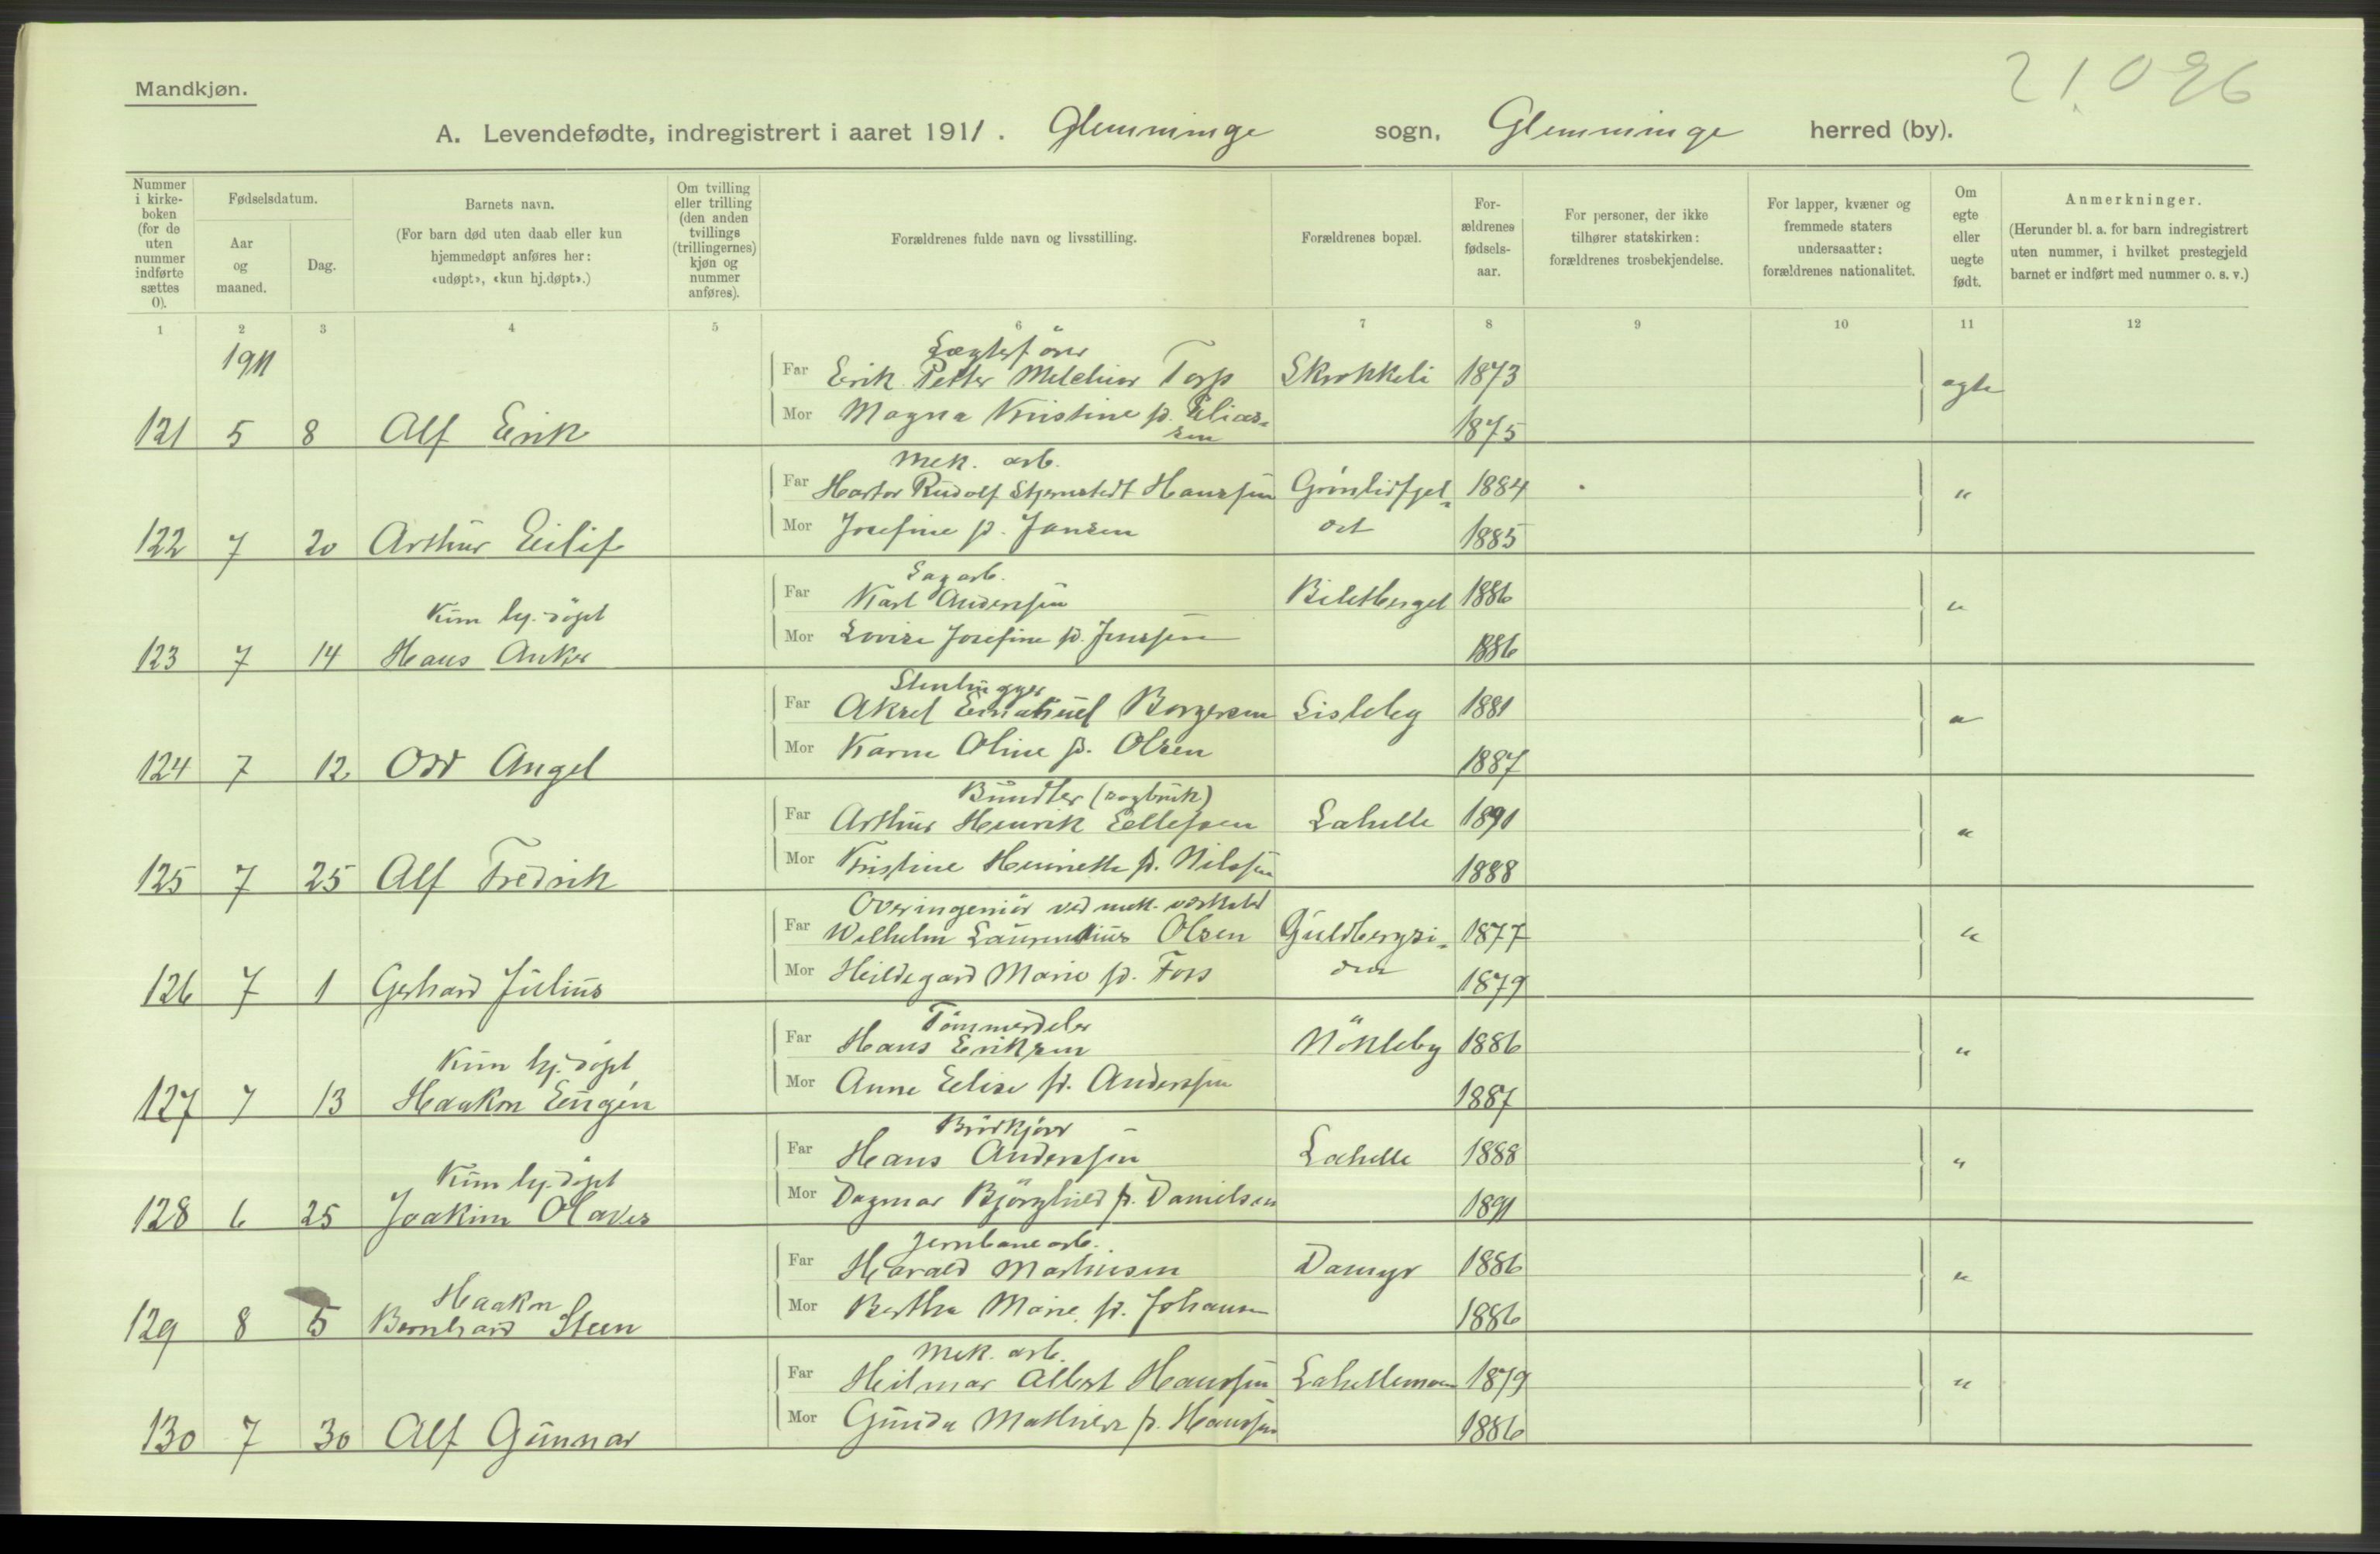 21.096
Mandkjøn.
A. Levendefødte, indregistrert i aaret 1911. Glemminge sogn, Glemminge herred (by).
Nummer i kirkeboken (for de uten nummer indførte sættes 0).
Fødselsdatum.
Aar og maaned.
Dag.
Barnets navn.
(For barn død uten daab eller kun hjemmedøpt anføres her: «udøpt», «kun hj.døpt».)
Om tvilling eller trilling (den anden tvillings (trillingernes) kjøn og nummer anføres).
Forældrenes fulde navn og livsstilling.
Forældrenes bopæl.
Forældrenes fødselsaar.
For personer, der ikke tilhører statskirken: forældrenes trosbekjendelse.
For lapper, kvæner og fremmede staters undersaatter: forældrenes nationalitet.
Om egte eller uegte født.
Anmerkninger.
(Herunder bl. a. for barn indregistrert uten nummer, i hvilket prestegjeld barnet er indført med nummer o. s. v.)
1 2 3 4 5 6 7 8 9 10 11 12
1911
Lægterfører
Far Erik Petter Melchior Torp Skrokkeli 1873 egte
Mor Magna Kristine f. Eliassen 1875
121 5 8 Alf Erik
Mek. arb.
Far Rudolf Stjernstedt Hanssen 1884 "
Mor Josefine f. Jansen 1885
122 7 20 Arthur Eilif
Sagarb.
Far Karl Anderssen Biletberget 1886 "
Kun hj. døpt
Mor Lovise Josefine f. Jenssen 1886
123 7 14 Hans Anker
Stenhugger
Far Aksel Emanuel Borgersen Lisleby 1881 "
Mor Karen Oline f. Olsen 1887
124 7 12 Odd Angel
Bundter (sagbruk)
Far Arthur Henrik Ellefsen Lahelle 1891 "
Mor Kristine Henriette f. Nilssen 1888
125 7 25 Alf Fredrik
Overingeniør ved mek. verksted
Far Wilhelm Laurentius Olsen Guldbergsiden 1877 "
Mor Hildegard Marie f. Foss 1879
126 7 1 Gerhard Julius
Tømmerdeler
Far Hans Eriksen Nökleby 1886 "
Kun hj. døpt
Mor Anne Elise f. Anderssen 1887
127 7 13 Haakon Eugén
Brödkjører
Far Hans Anderssen Lahelle 1888 "
Kun hj. døpt
Mor Dagmar Bjørghild f. Danielsen 1891
128 6 25 Joakim Olaves
Jernbanearb.
Far Harald Martinsen Dammyr 1886 "
Haakon
Mor Bertha Marie f. Johansen 1886
129 8 5 Bernhard Steen
Mek. arb.
Far Hilmar Albert Hanssen Lahellemoen 1879 "
Mor Gunda Mathilde f. Hanssen 1886
130 7 30 Alf Gunnar